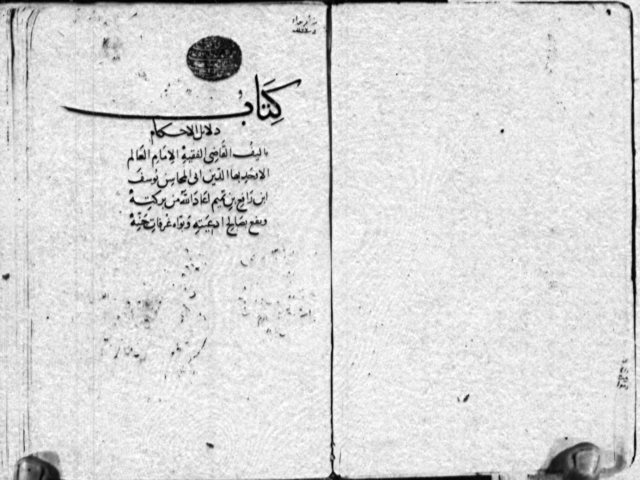 كِتَابُ
دلائل الاحكام
تاليف القاضي الفقيه الامام العالم
الاوحد بهاء الدين ابى المحاسن يوسف
ابن رافع بن تميم اعاد الله من بركته
ونفع بصالح ادعيته وبوأه غرفات جنته